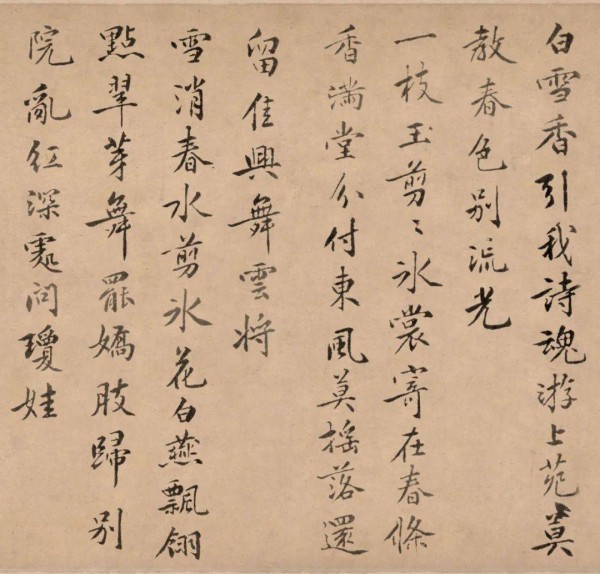 白雪香引我詩魂游上苑莫
教春色別流光
一枝玉剪〻冰裳寄在春條
香滿堂分付東風莫搖落還
留佳興舞雲將
雪消春水剪冰花白燕飄翎
點翠芽舞罷嬌肢歸別
院亂紅深處問瓊娃